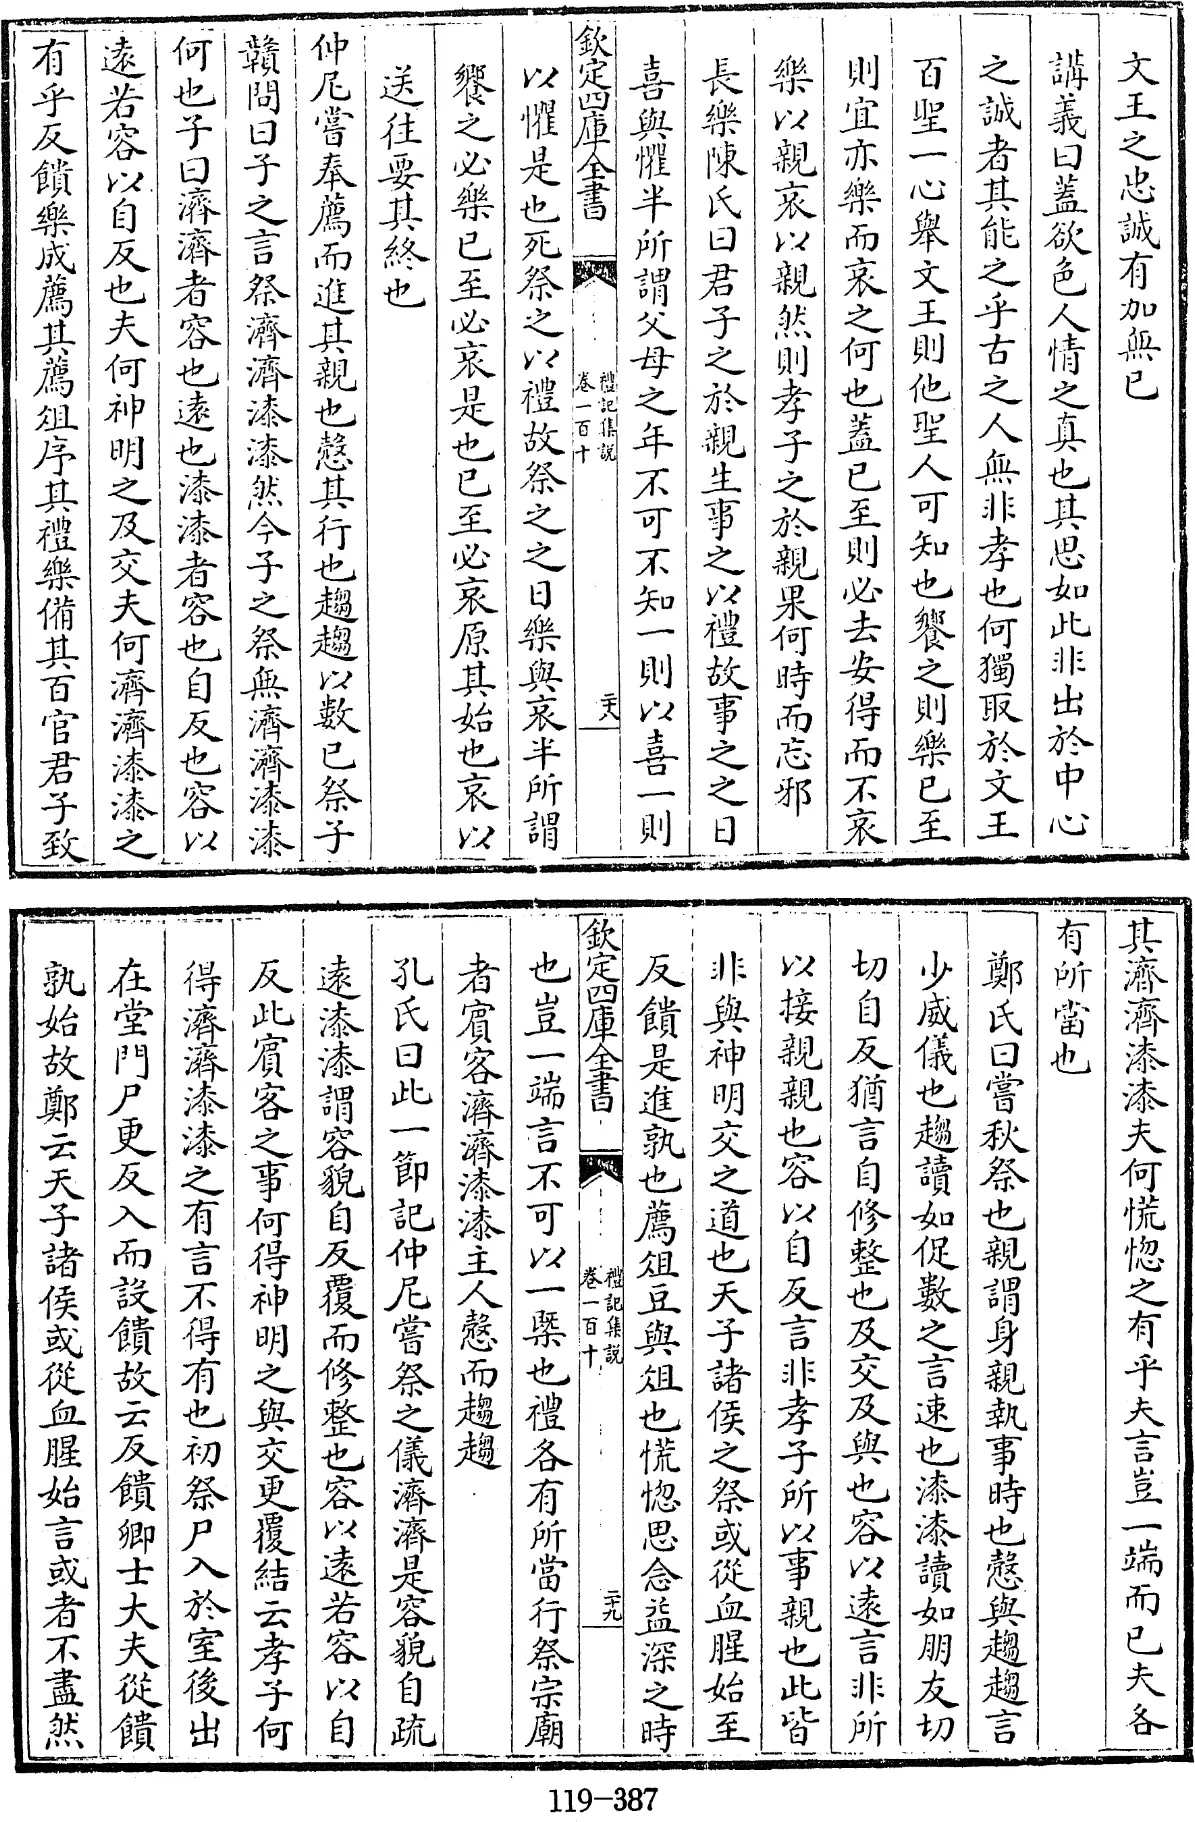 文王之忠誠有加無已
講義曰蓋欲色人情之真也其思如此非出於中心
之誠者其能之乎古之人無非孝也何獨取於文王
百聖一心舉文王則他聖人可知也饗之則樂已至
則宜亦樂而哀之何也蓋已至則必去安得而不哀
樂以親哀以親然則孝子之於親果何時而忘邪
長樂陳氏曰君子之於親生事之以禮故事之之日
喜與懼半所謂父母之年不可不知一則以喜一則
欽定四庫全書
禮記集說
卷一百十
二十八
以懼是也死祭之以禮故祭之之日樂與哀半所謂
饗之必樂已至必哀是也已至必哀原其始也哀以
送往要其終也
仲尼嘗奉薦而進其親也慤其行也趨趨以數已祭子
贛問曰子之言祭濟濟漆漆然今子之祭無濟濟漆漆
何也子曰濟濟者容也遠也漆漆者容也自反也容以
遠若容以自反也夫何神明之及交夫何濟濟漆漆之
有乎反饋樂成薦其薦俎序其禮樂備其百官君子致
其濟濟漆漆夫何慌惚之有乎夫言豈一端而已夫各
有所當也
鄭氏曰嘗秋祭也親謂身親執事時也慤與趨趨言
少威儀也趨讀如促數之言速也漆漆讀如朋友切
切自反猶言自修整也及交及與也容以遠言非所
以接親親也容以自反言非孝子所以事親也此皆
非與神明交之道也天子諸侯之祭或從血腥始至
反饋是進孰也薦俎豆與俎也慌惚思念益深之時
欽定四庫全書
禮記集說
卷一百十
二十九
也豈一端言不可以一槩也禮各有所當行祭宗廟
者賓客濟濟漆漆主人慤而趨趨
孔氏曰此一節記仲尼嘗祭之儀濟濟是容貌自疏
遠漆漆謂容貌自反覆而修整也容以遠若容以自
反此賓客之事何得神明之與交更覆結云孝子何
得濟濟漆漆之有言不得有也初祭尸入於室後出
在堂門尸更反入而設饋故云反饋卿士大夫從饋
孰始故鄭云天子諸侯或從血腥始言或者不盡然
119-387